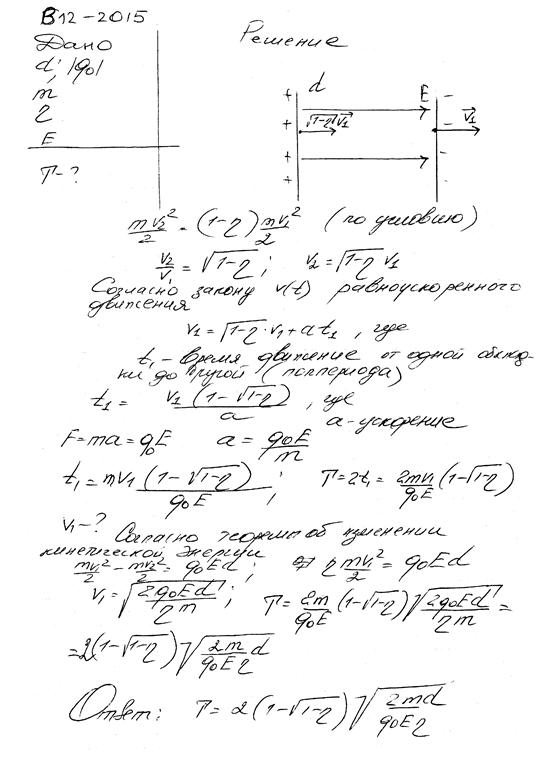 B12-2015
Дано
Решение
d; |q₀|
m
η
E
T-?
d E
+ + + +
- - - -
√(1-η) v⃗₁
v⃗₁
mv₂²/2 = (1-η) mv₁²/2 (по условию)
v₂/v₁ = √(1-η); v₂ = √(1-η) v₁
Согласно закону v(t) равноускоренного
движения
v₁ = √(1-η)·v₁ + at₁, где
t₁ - время движение от одной обклад-
ки до другой (полпериода)
t₁ = v₁(1-√(1-η))/a, где
a-ускорение
F = ma = q₀E a = q₀E/m
t₁ = mv₁(1-√(1-η))/q₀E; T = 2t₁ = 2mv₁/q₀E (1-√(1-η))
v₁-? Согласно теореме об изменении
кинетической энергии
mv₁²/2 - mv₂²/2 = q₀Ed; => η mv₁²/2 = q₀Ed
v₁ = √(2q₀Ed/ηm); T = 2m/q₀E (1-√(1-η)) √(2q₀Ed/ηm) =
= 2(1-√(1-η)) √(2m/q₀Eη d)
Ответ: T = 2(1-√(1-η)) √(2md/q₀Eη)